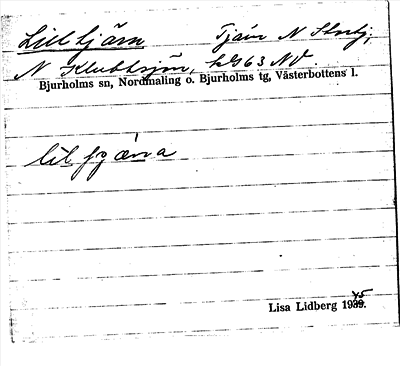 Lilltjärn Tjärn N Stortj,
N Klubbsjön, kg 63 NV.
Bjurholms sn, Nordmaling o. Bjurholms tg, Västerbottens l.
lil₍ çæ̀rna
Lisa Lidberg 1945.